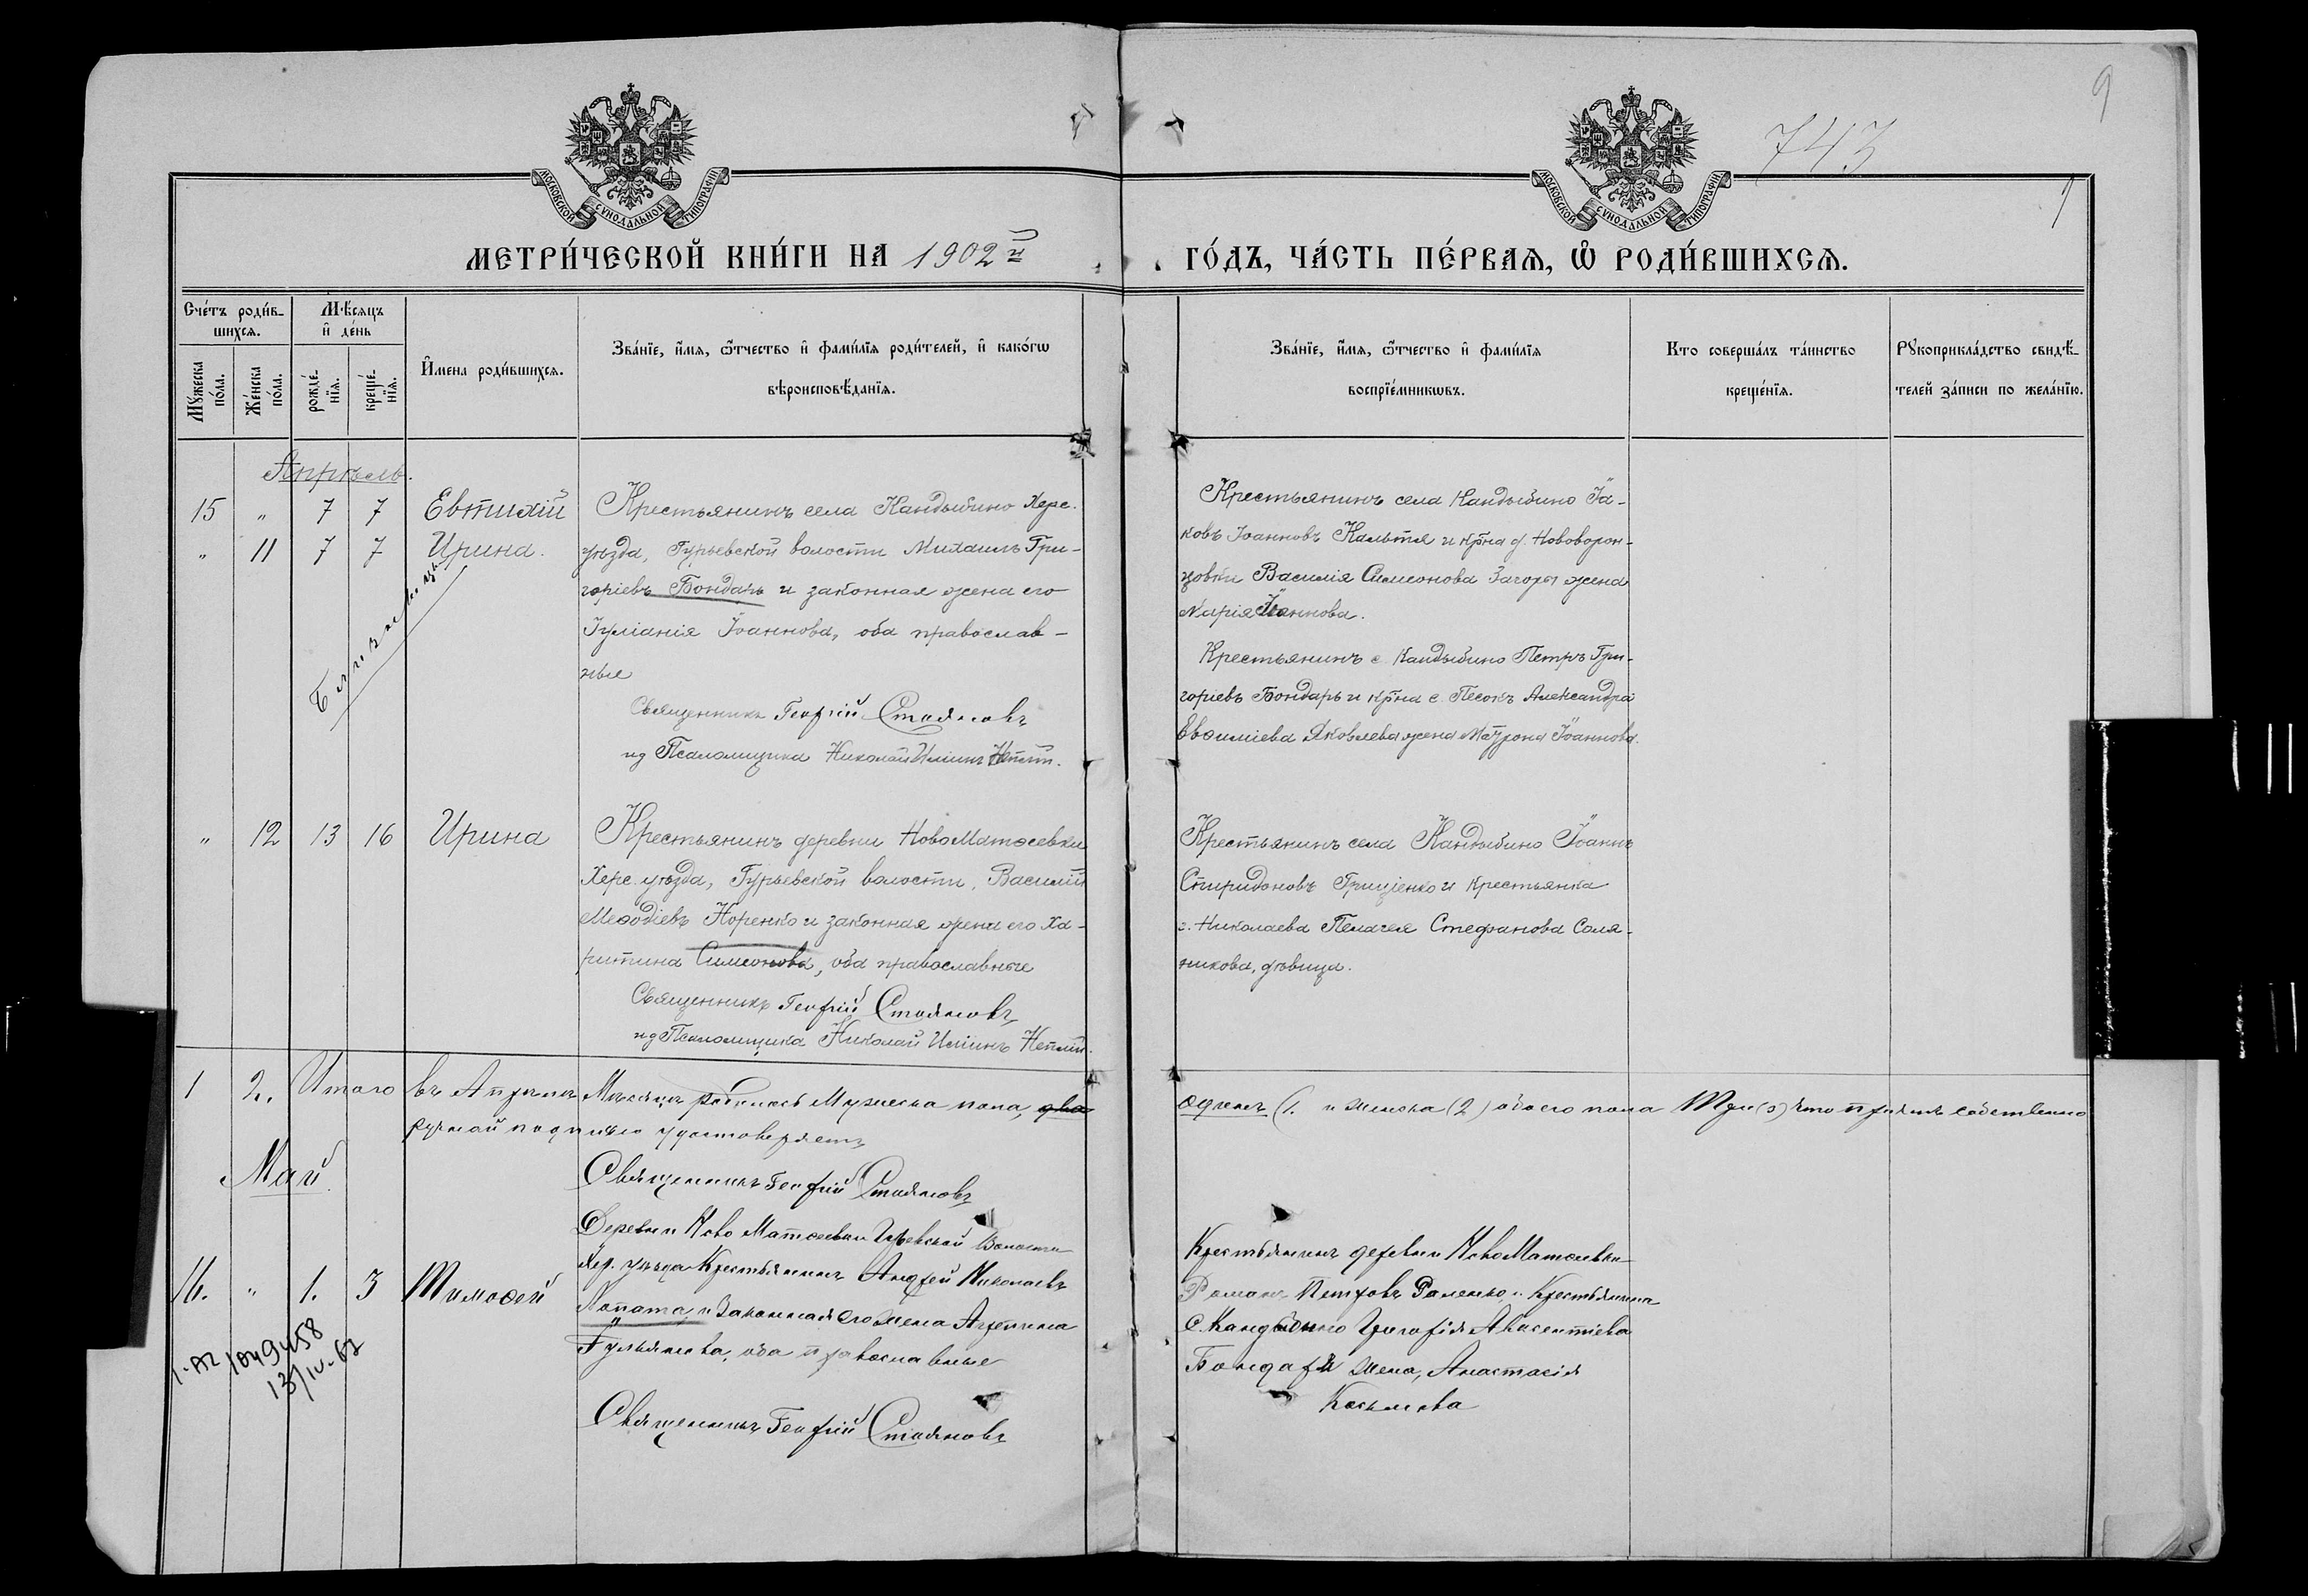 9
743
МОСКОВСКОЙ СУНОДАЛЬНОЙ ТИПОГРАФІИ
МОСКОВСКОЙ СУНОДАЛЬНОЙ ТИПОГРАФІИ
МЕТРИ́ЧЕСКОЙ КНИ́ГИ НА 1902й
ГО́ДЪ, ЧА́СТЬ ПЕ́РВАѦ, Ѡ РОДИ́ВШИХСѦ.
Сче́тъ роди́в-
шихсѧ.
Мѣ́сѧцъ
и҆ де́нь
Мꙋ́жеска
по́ла.
Же́нска
по́ла.
рожде́-
нїѧ.
креще́-
нїѧ.
И҆мена роди́вшихсѧ.
Зва́нїе, и҆́мѧ, ѻ҆́тчество и҆ фами́лїѧ роди́телей, и҆ како́гѡ
вѣроисповѣ́данїѧ.
Зва́нїе, и҆́мѧ, ѻ҆́тчество и҆ фами́лїѧ
воспрїе́мникѡвъ.
Кто соверша́лъ та́инство
креще́нїѧ.
Рꙋкоприкла́дство свидѣ́-
телей за́писи по жела́нїю.
Апрѣль.
15 " 7 7 Евтихій
" 11 7 7 Ирина.
Близнецы
Крестьянинъ села Кандыбино Херс.
уѣзда, Гурьевской волости Михаилъ Гри-
горіевъ Бондарь и законная жена его
Іуліанія Іоаннова, оба православ-
ные
Священникъ Георгій Стояновъ
ид Псаломщика Николай Иліинъ
Крестьянинъ села Кандыбино Іа-
ковъ Іоанновъ и кр̃на д. Нововорон-
цовки Василія Симеонова Загоры жена
Марія Іоаннова.
Крестьянинъ с. Кандыбино Петръ Гри-
горіевъ Бондарь и кр̃на с. Песокъ Александра
Евѳиміева Яковлева жена Матрона Іоаннова.
" 12 13 16 Ирина
Крестьянинъ деревни НовоМатѳеевки
Херс. уѣзда, Гурьевской волости, Василій
Меѳодіевъ Норенко и законная жена его Ха-
ритина Симеонова, оба православные
Священникъ Георгій Стояновъ
ид Псаломщика Николай Иліинъ
Крестьянинъ села Кандыбино Іоаннъ
Спиридоновъ Гриценко и крестьянка
г. Николаева Пелагея Стефанова Соля-
никова, дѣвица.
1 2. Итого въ Апрѣлѣ Мѣсяцѣ родилось Мужеска пола, два
одинъ (1. и женска (2) обоего пола Три (3) что причтъ собственно
ручной подписью удостовѣряетъ
Священникъ Георгій Стояновъ
Май
16. " 1. 3 Тимоѳей
Деревни Ново Матѳеевки Гурьевской Волости
Хер. уѣзда Крестьянинъ Андрей Николаевъ
Лопата, и Законная его жена Агрипина
оба православные
Священникъ Георгій Стояновъ
Крестьянинъ деревни НовоМатѳеевки
Романъ Петровъ и Крестьянина
С. Кандыбино Григорія Авксентіева
Бондаря жена, Анастасія
Косьмова
1049458
13/IV-62